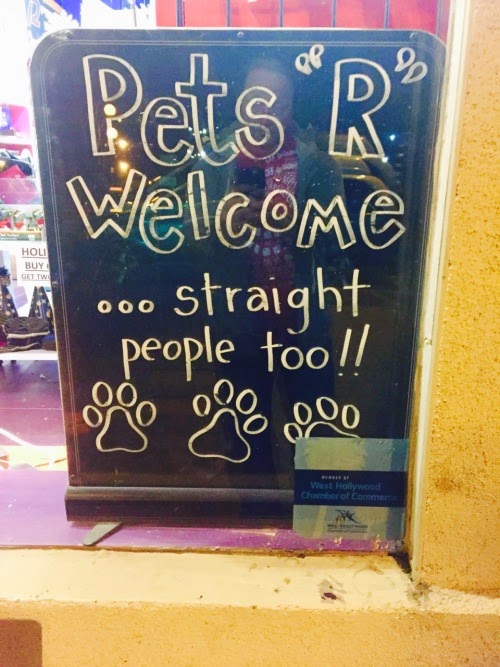 Pets "R"
Welcome
... straight
people too!!
HOLI
BUY
GET TW
MEMBER OF
West Hollywood
Chamber of Commerce